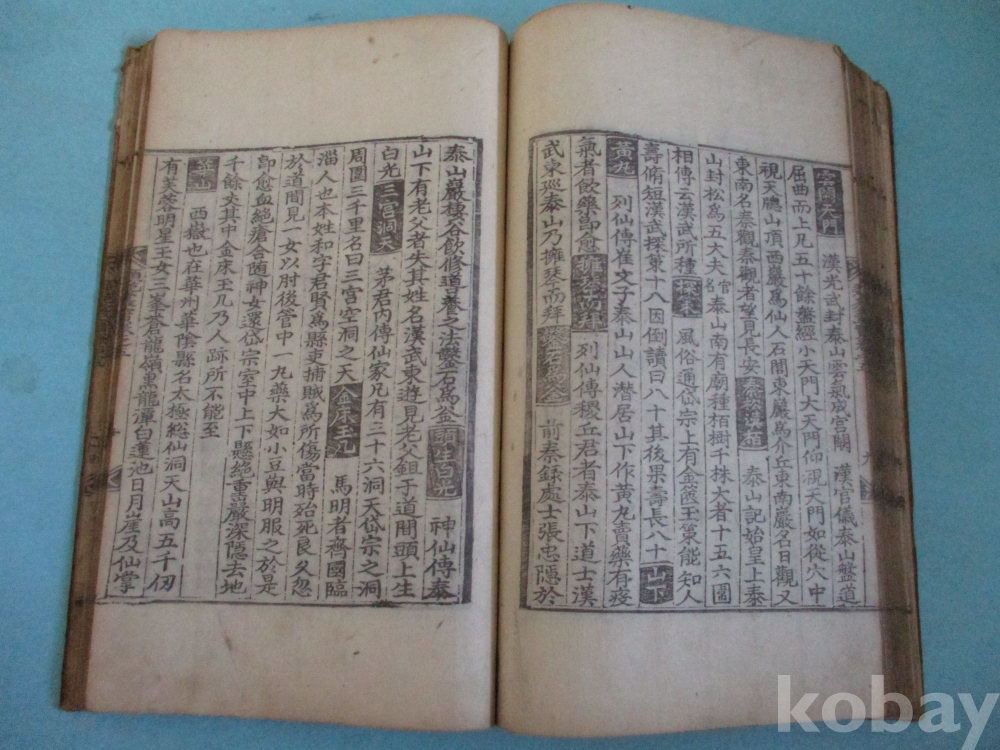 漢光武封泰山雲氣成宮闕 漢官儀泰山盤道
屈曲而上凡五十餘盤經小天門大天門仰視天門如從穴中
視天牕山頂西巖爲仙人石閭東巖爲介丘東南巖名日觀又
東南名秦觀秦觀者望見長安 泰山記始皇上泰
山封松爲五大夫官名泰山南有廟種栢樹千株大者十五六圍
相傳云漢武所種 探策 風俗通岱宗上有金篋玉策能知人
壽脩短漢武探策十八因倒讀曰八十其後果壽長八十 山下
黃丸 列仙傳崔文子泰山山人潛居山下作黃丸賣藥有疫
氣者飲藥卽愈 擁琴而拜 列仙傳稷丘君者泰山下道士漢
武東巡泰山乃擁琴而拜 鑿石爲釜 前秦錄處士張忠隱於
泰山巖棲谷飮修道養之法鑿石爲釜 頭生白光 神仙傳泰
山下有老父者失其姓名漢武東遊見老父鉏于道間頭上生
白光 三宮洞天 茅君內傳仙家凡有三十六洞天岱宗之洞
周圍三千里名曰三宮空洞之天 金床玉几 馬明者齊國臨
淄人也本姓和字君賢爲縣吏捕賊爲所傷當時殆死良久忽
於道間見一女以肘後管中一丸藥大如小豆與明服之於是
卽愈血絕瘡合隨神女還岱宗室中上下懸絕重巖深隱去地
千餘丈其中金床玉几乃人跡所不能至
華山 西嶽也在華州華陰縣名太極総仙洞天山高五千仞
有芙蓉明星玉女三峯蒼龍嶺黑龍潭白蓮池日月崖及仙掌
kobay